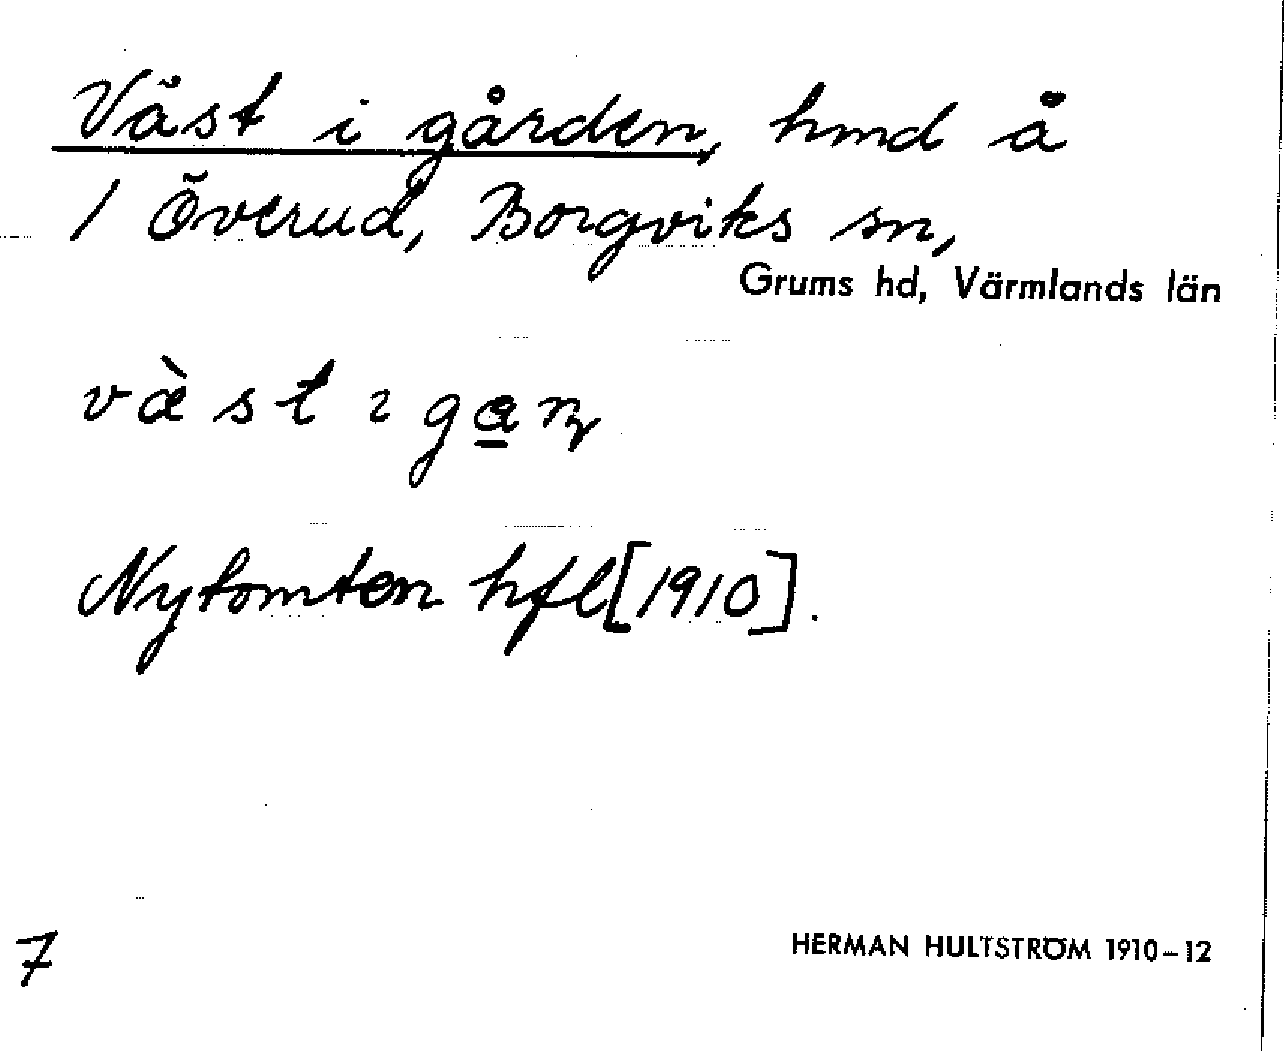 Väst i gården, hmd å
1 Överud, Borgviks sn,
Grums hd, Värmlands län
væ̀st ɩ ga̲ɳ
Nytomten hfl [1910].
7
HERMAN HULTSTRÖM 1910–12